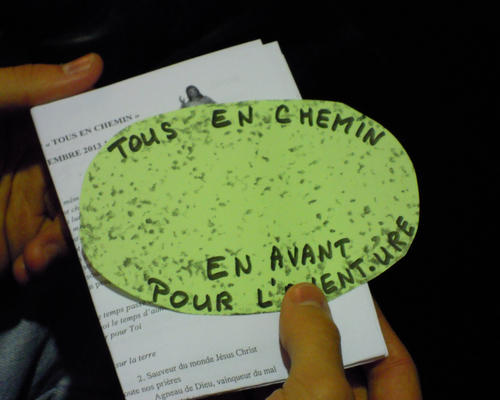 « TOUS EN CHEMIN »
EMBRE 2013
TOUS EN CHEMIN
EN AVANT
POUR L'AVENT.URE
temps
oi le temps d'aim
pour Toi
sur la terre
2. Sauveur du monde Jésus Christ
oute nos prières
Agneau de Dieu, vainqueur du mal